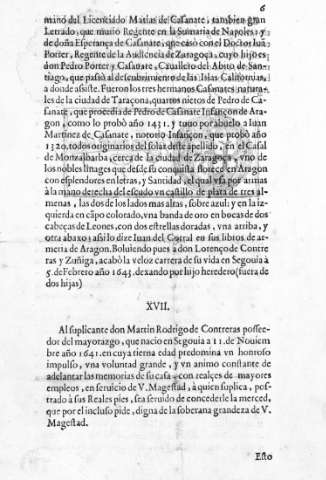 6
mano del Licenciado Matias de Casanate, tambien gran
Letrado, que murio Regente en la Sumaria de Napoles: y
de doña Esperança de Casanate, que casò con el Doctor Iuā
Porter, Regente de la Audiencia de Zaragoça, cuyo hijo es
don Pedro Porter y Casanate, Cauallero del Abito de San-
tiago, que passò al descubrimiento de las Islas Californias,
a donde assiste. Fueron los tres hermanos Casanates natura-
les de la ciudad de Taraçona, quartos nietos de Pedro de Ca-
sanate, que procedia de Pedro de Casanate Infançon de Ara-
gon, como lo prouò año 1431. y tuuo por abuelo a Iuan
Martinez de Casanate, notorio Infançon, que prouò año
1320. todos originarios del solar deste apellido, en el Casal
de Monzalbarba, cerca de la ciudad de Zaragoça, vno de
los nobles linages que desde su conquista florece en Aragon
con esplendores en letras, y Santidad, el qual vsa por armas
à la mano derecha del escudo vn castillo de plata de tres al-
menas, las dos de los lados mas altas, sobre azul: y en la iz-
quierda en cāpo colorado, vna banda de oro en bocas de dos
cabeças de Leones, con dos estrellas doradas, vna arriba, y
otra abaxo: assi lo dize Iuan del Corral en sus libros de ar-
meria de Aragon. Boluiendo pues à don Lorenço de Contre
ras y Zuñiga, acabò la veloz carrera de su vida en Segouia à
5. de Febrero año 1643. dexando por hijo heredero (fuera de
dos hijas)
XVII.
Al suplicante don Martin Rodrigo de Contreras possee-
dor del mayorazgo, que nacio en Segouia a 11. de Nouiem
bre año 1641. en cuya tierna edad predomina vn honroso
impulso, vna voluntad grande, y vn animo constante de
adelantar las memorias de su casa con realçes de mayores
empleos, en seruicio de V. Magestad, à quien suplica, pos-
trado à sus Reales pies, sea seruido de concederle la merced,
que por el incluso pide, digna de la soberana grandeza de V.
Magestad.
Esto